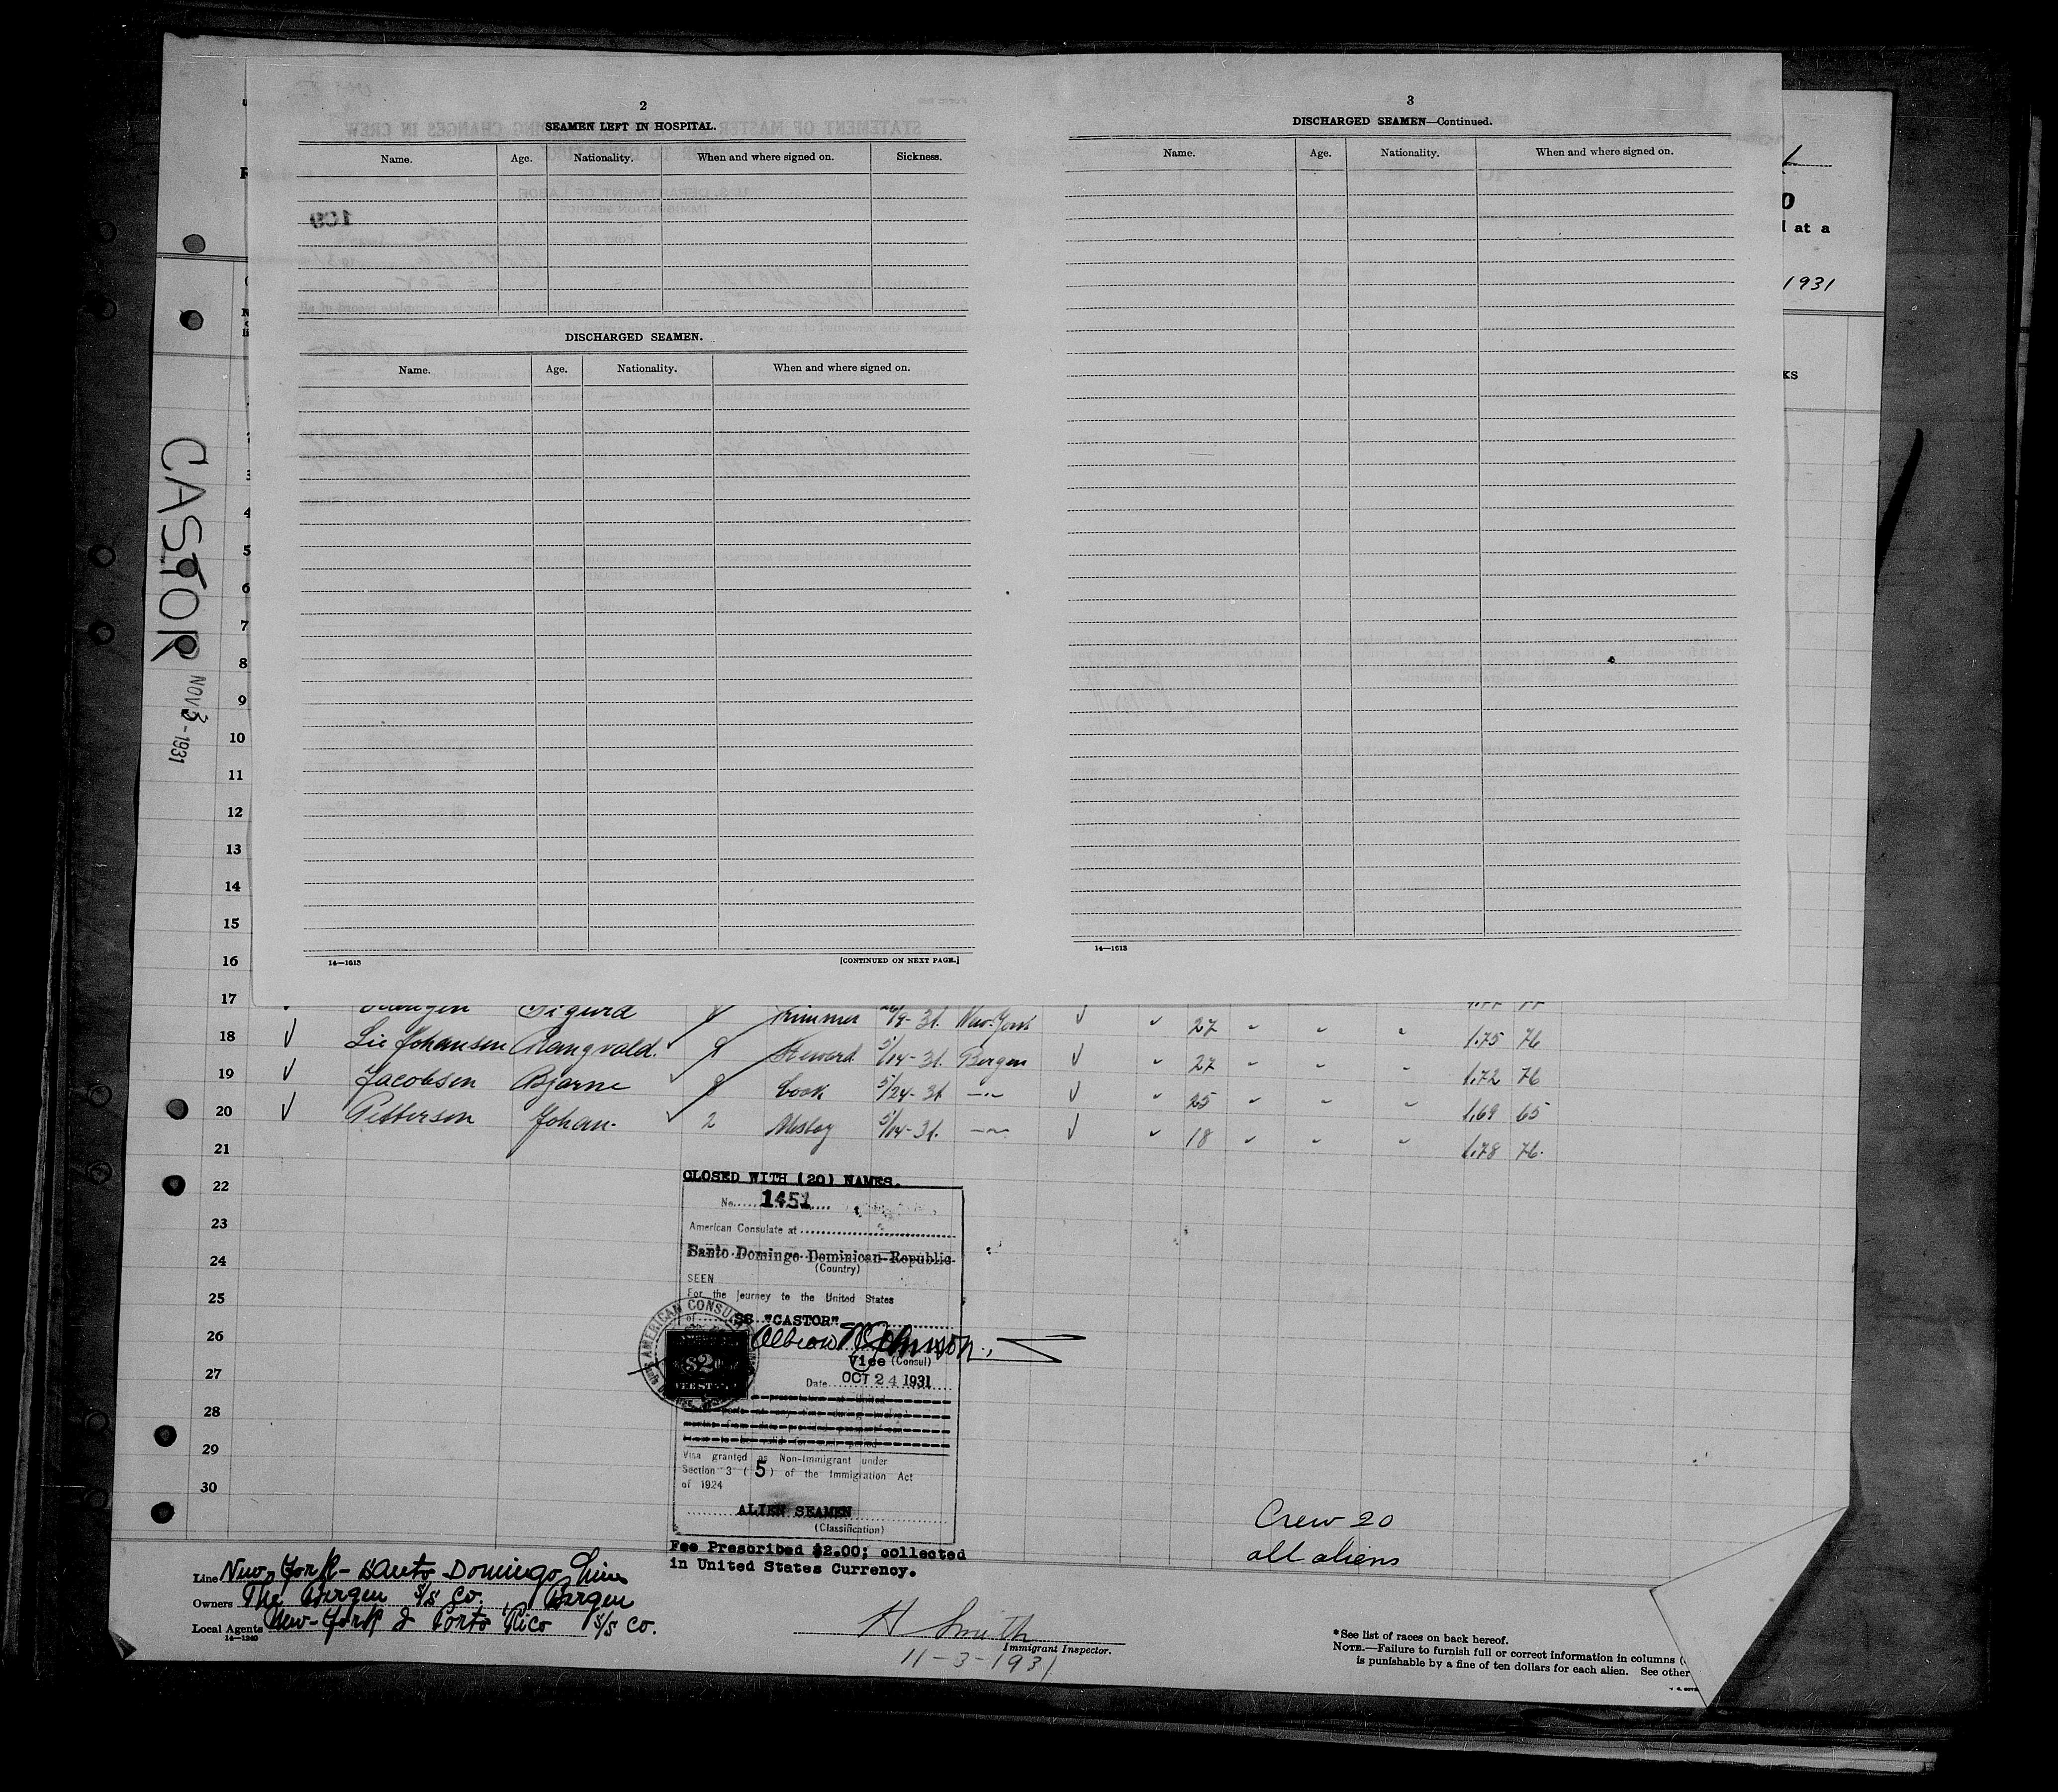 2
SEAMEN LEFT IN HOSPITAL.
Name. Age. Nationality. When and where signed on. Sickness.
DISCHARGED SEAMEN.
Name. Age. Nationality. When and where signed on.
14—1613 [CONTINUED ON NEXT PAGE.]
3
DISCHARGED SEAMEN—Continued.
Name. Age. Nationality. When and where signed on.
14—1613
at a
1931
KS
CASTOR
NOV 3 - 1931
3
4
5
6
7
8
9
10
11
12
13
14
15
16
17 Sigurd Trimmer 9-31. New-York 27 1.75 76
18 Lie Johansen Rangvald. 8 Steward 5/14-31. Bergen 27 1.72 76
19 Jacobsen Bjarne 8 Cook 5/24-31 —"— 25 1.69 65
20 Petterson Johan. 2 5/14-31. —"— 18 1.78 76.
21
22
23
24
25
26
27
28
29
30
CLOSED WITH (20) NAMES.
No. 1451
American Consulate at
Santo Domingo Dominican Republic
(Country)
SEEN
For the journey to the United States
of SS. "CASTOR"
Vice (Consul)
Date OCT 24 1931
AMERICAN CONSU
$2
Visa granted as Non-Immigrant under
Section 3 (5) of the Immigration Act
of 1924
ALIEN SEAMEN
(Classification)
Fee Prescribed $2.00; collected
in United States Currency.
Crew 20
all aliens
Line New-York-Santo Domingo Line
Owners The Bergen S/S Co. Bergen
Local Agents New-York & Porto Rico S/S Co.
14—1240
H Smith
Immigrant Inspector.
11-3-1931
*See list of races on back hereof.
NOTE.—Failure to furnish full or correct information in columns (
is punishable by a fine of ten dollars for each alien. See other